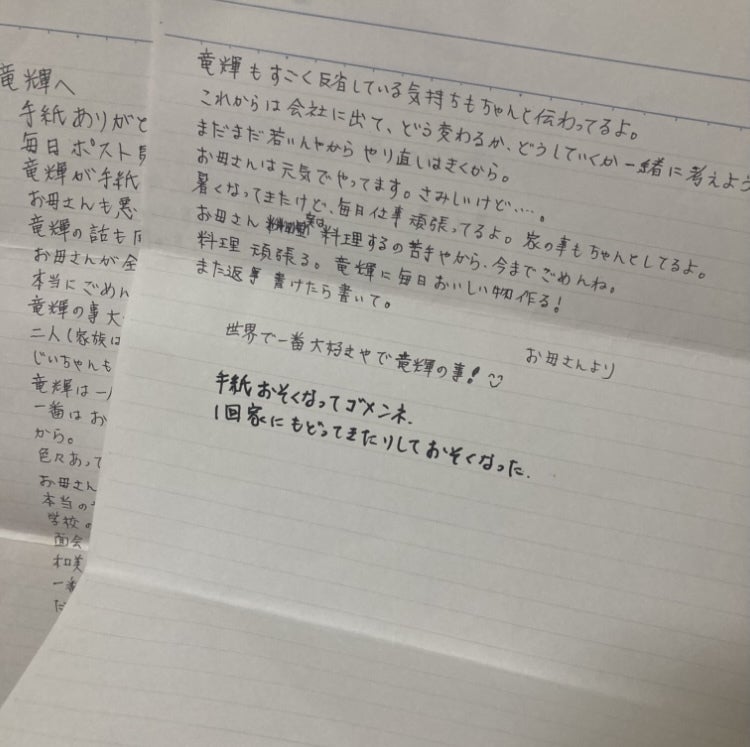 竜輝へ
手紙ありがと
毎日ポスト
竜輝が手紙
お母さんも悪
竜輝の話も
お母さんが全
本当にごめん
竜輝の事大
二人(家族は
じいちゃんも
竜輝は一
一番はお
から。
色々あって
お母さん
本当の
学校の
面会
一番
竜輝もすごく反省している気持ちもちゃんと伝わってるよ。
これからは会社に出て、どう変わるか、どうしていくか一緒に考えよう
まだまだ若いんやからやり直しはきくから。
お母さんは元気でやってます。さみしいけど…。
暑くなってきたけど、毎日仕事頑張ってるよ。家の事もちゃんとしてるよ。
お母さん実は料理するの苦手やから、今までごめんね。
料理頑張る。竜輝に毎日おいしい物作る!
また返事書けたら書いて。
お母さんより
世界で一番大好きやで竜輝の事!
手紙おそくなってゴメンネ.
1回家にもどってきたりしておそくなった.